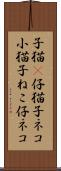 子猫 仔猫子ネコ
小猫子ねこ仔ネコ